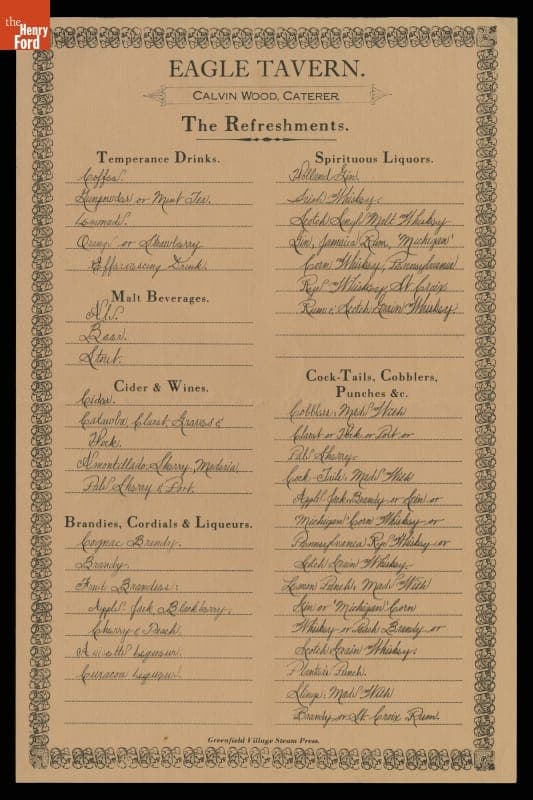 the
Henry
Ford
EAGLE TAVERN.
CALVIN WOOD, CATERER.
The Refreshments.
Temperance Drinks.
Coffee.
Gunpowder or Mint Tea.
Lemonade.
Orange or Strawberry
Effervescing Drink.
Malt Beverages.
Ale.
Beer.
Stout.
Cider & Wines.
Cider.
Catawba, Claret, Graves &
Hock.
Amontillado Sherry, Madeira,
Pale Sherry & Port.
Brandies, Cordials & Liqueurs.
Cognac Brandy.
Brandy.
Fruit Brandies:
Apple Jack Blackberry,
Cherry & Peach.
Anisette Liqueur.
Curacoa Liqueur.
Spirituous Liquors.
Holland Gin.
Irish Whiskey.
Scotch Single Malt Whiskey
Gin, Jamaica Rum, Michigan
Corn Whiskey, Pennsylvania
Rye Whiskey, St Croix
Rum & Scotch Grain Whiskey.
Cock-Tails, Cobblers,
Punches &c.
Cobblers: Made With
Claret or Hock or Port or
Pale Sherry.
Cock-Tails: Made With
Apple Jack Brandy or Gin or
Michigan Corn Whiskey or
Pennsylvania Rye Whiskey or
Scotch Grain Whiskey.
Lemon Punch: Made With
Gin or Michigan Corn
Whiskey or Peach Brandy or
Scotch Grain Whiskey.
Planter's Punch.
Slings: Made With
Brandy or St Croix Rum.
Greenfield Village Steam Press.